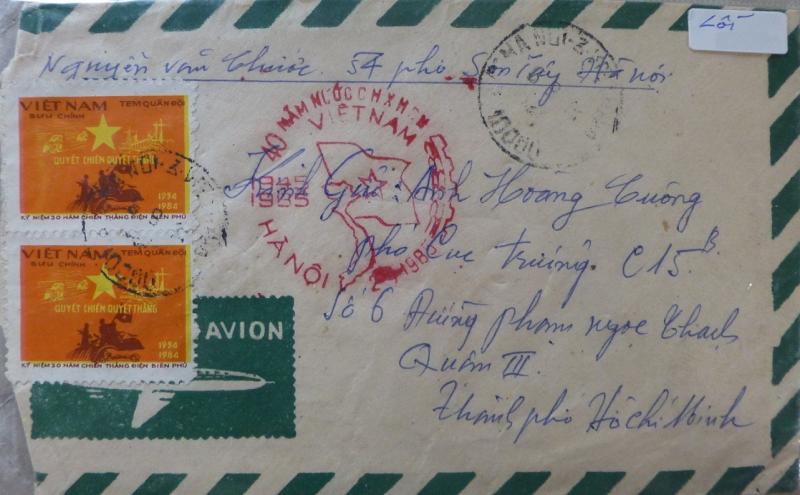 Lỗi
Nguyễn văn Chước. 54 phố Sơn Tây Hà nội
HA NOI-Z.V
10000
VIỆT NAM TEM QUÂN ĐỘI
BƯU CHÍNH
QUYẾT CHIẾN QUYẾT THẮNG
1954
1984
KỶ NIỆM 30 NĂM CHIẾN THẮNG ĐIỆN BIÊN PHỦ
40 NĂM NƯỚC CHXHCN
VIỆTNAM
1945
1985
HÀ NỘI
Kính Gửi: Anh Hoàng Cường
phó Cục trưởng. C15B
Số 6 Đường phạm ngọc Thạch
Quận III.
Thành phố Hồ chí Minh
VIỆT NAM TEM QUÂN ĐỘI
BƯU CHÍNH
QUYẾT CHIẾN QUYẾT THẮNG
1954
1984
KỶ NIỆM 30 NĂM CHIẾN THẮNG ĐIỆN BIÊN PHỦ
AVION